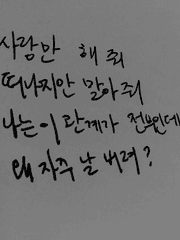 사람만 해 줘
떠나지만 말아줘
나는 이 관계가 전부인데
왜 자주 날 버려?